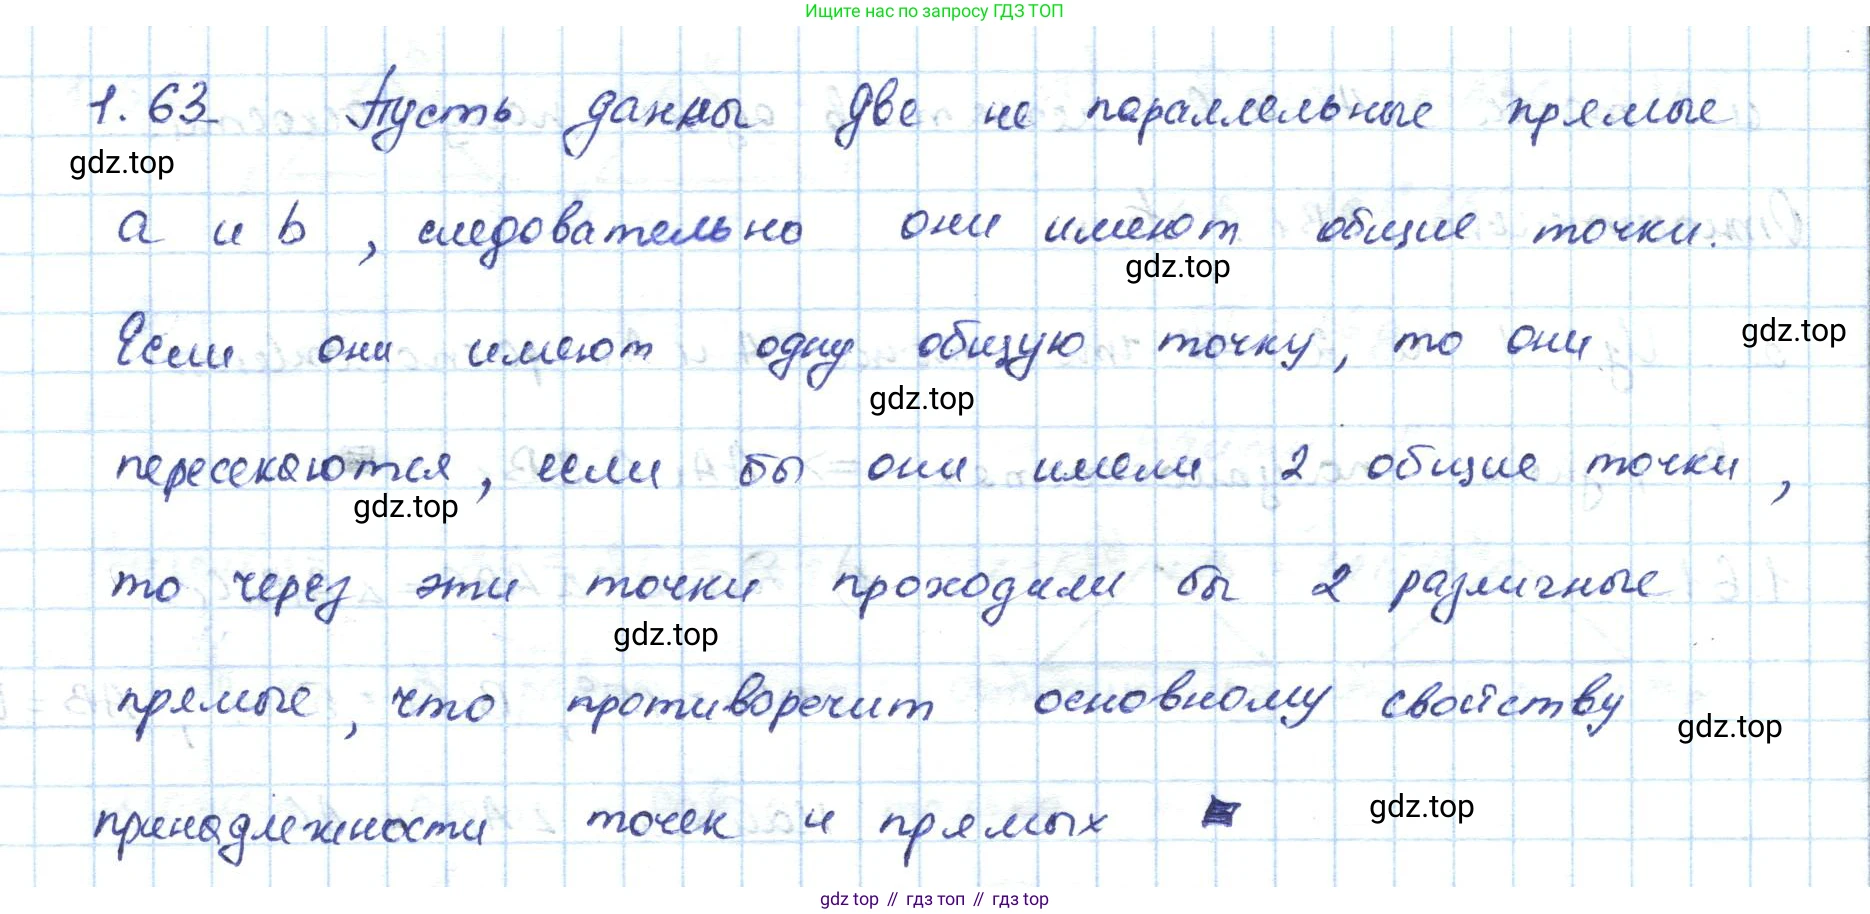 Ищите нас по запросу ГДЗ ТОП
1.63 Пусть данны две не параллельные прямые
gdz.top
a и b, следовательно они имеют общие точки.
gdz.top
Если они имеют одну общую точку, то они
gdz.top
gdz.top
пересекаются, если бы они имели 2 общие точки,
gdz.top
то через эти точки проходили бы 2 различные
gdz.top
прямые, что противоречит основному свойству
gdz.top
принадлежности точек и прямых
gdz.top
gdz top // гдз топ // гдз top